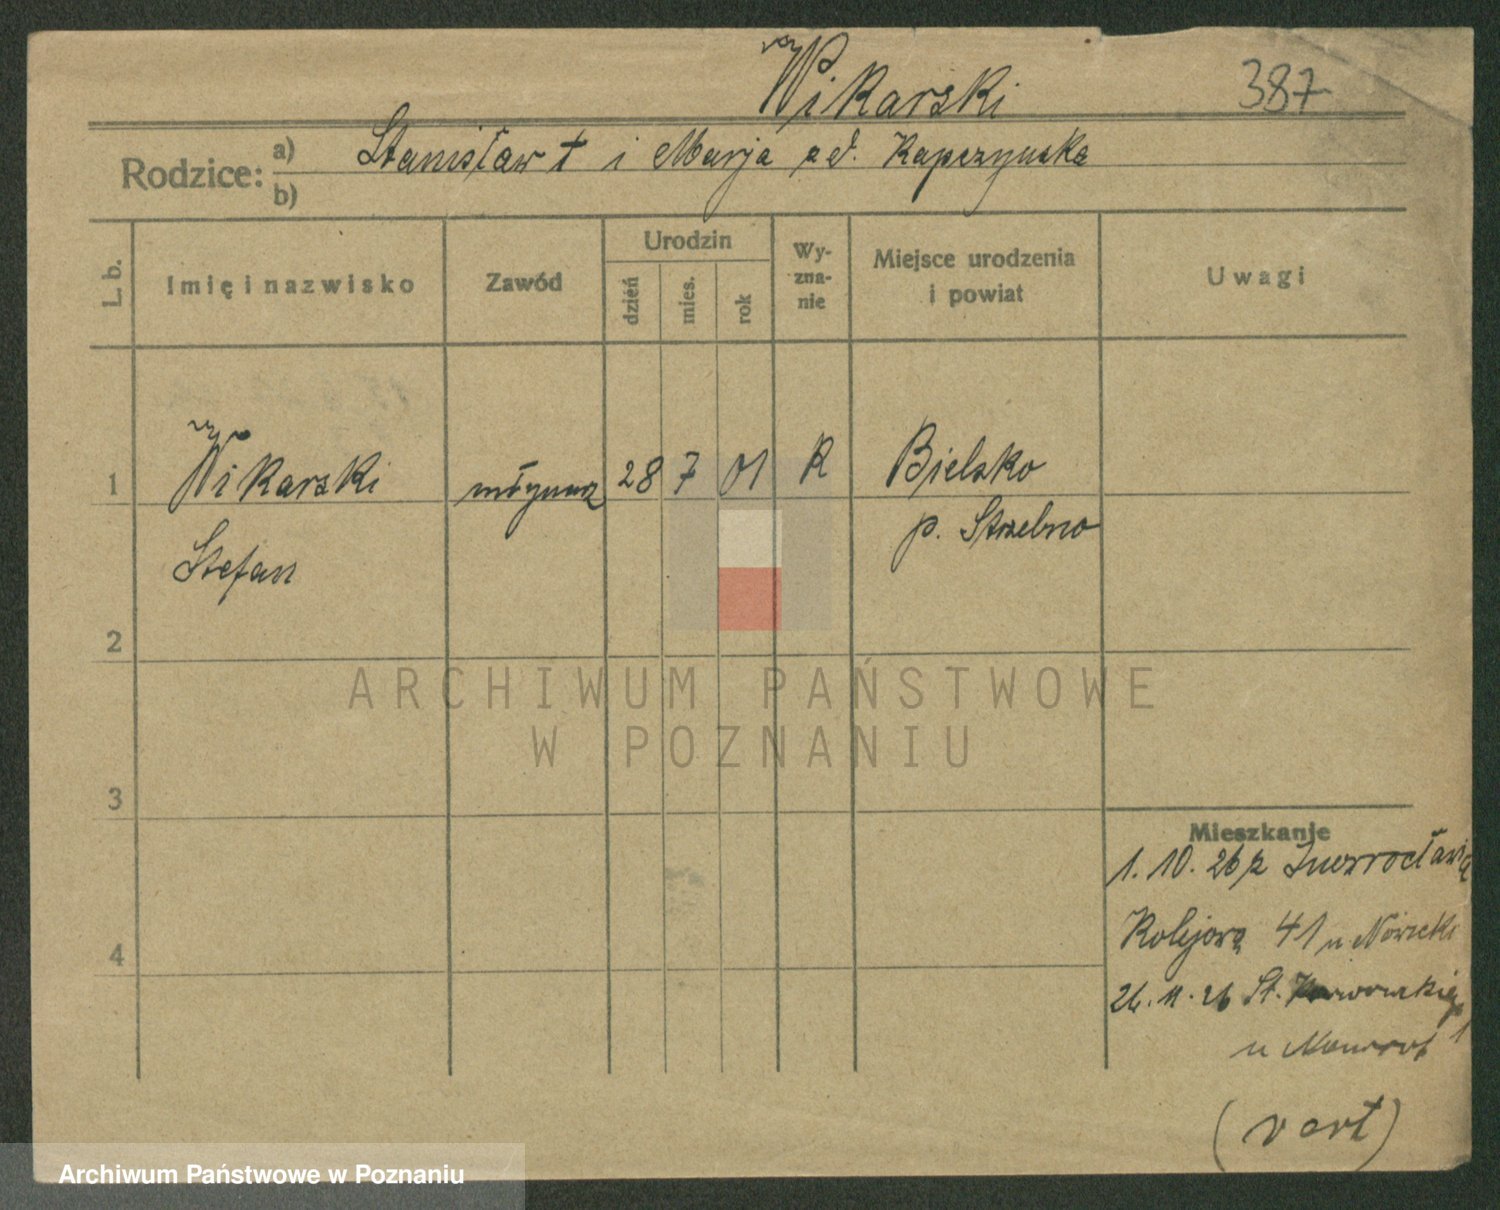 Wikarski
387
Rodzice:
a) Stanisław † i Marja zd. Kapczyńska
b)
L. b.
Imię i nazwisko
Zawód
Urodzin
dzień
mies.
rok
Wy-
zna-
nie
Miejsce urodzenia
i powiat
Uwagi
1 Wikarski młynarz 28 7 01 R Bielsko
Stefan p. Strzelno
2
3
4
Mieszkanie
1.10.26 z Inowrocławia
Kolejowa 41 u Nowicki
26.11.26 St.
u
(vert)
ARCHIWUM PAŃSTWOWE
W POZNANIU
Archiwum Państwowe w Poznaniu